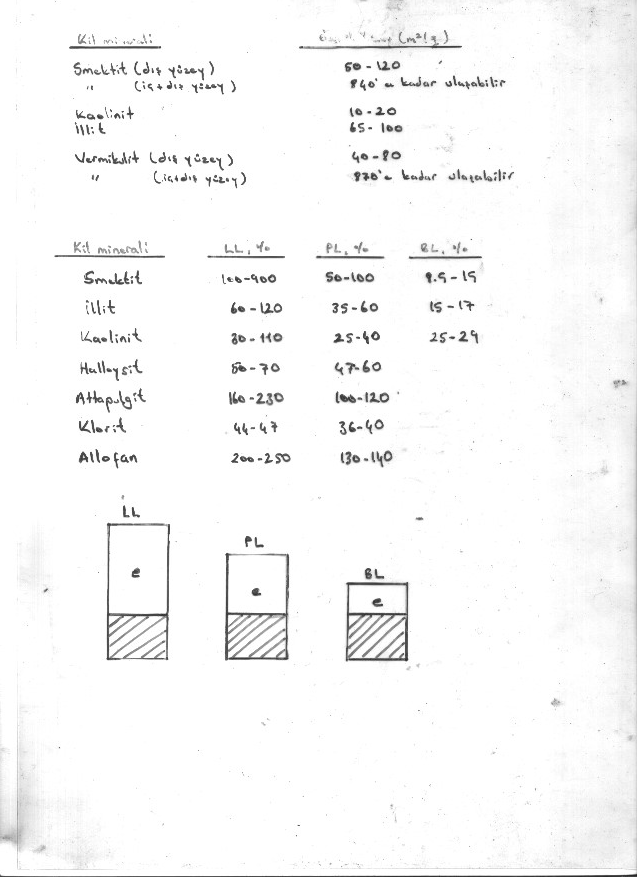 Kil minerali (m²/g)
Smektit (dış yüzey) 50-120
" (iç+dış yüzey) 840'a kadar ulaşabilir
Kaolinit 10-20
illit 65-100
Vermikulit (dış yüzey) 40-80
" (iç+dış yüzey) 870'e kadar ulaşabilir
Kil minerali LL, % PL, % BL, %
Smektit 100-900 50-100 8.5-15
illit 60-120 35-60 15-17
Kaolinit 30-110 25-40 25-29
Halloysit 50-70 47-60
Attapulgit 160-230 100-120
Klorit 44-47 36-40
Allofan 200-250 130-140
LL
PL
BL
e
e
e